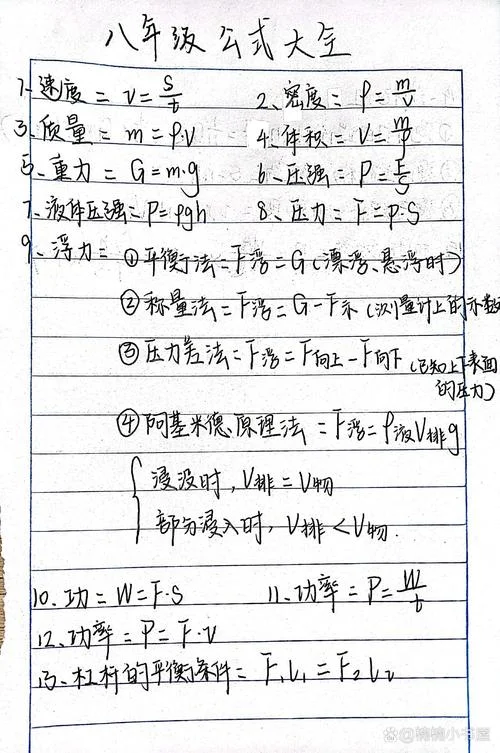 八年级公式大全
1、速度 = v = s/t 2、密度 = ρ = m/v
3、质量 = m = ρ·V 4、体积 = V = m/ρ
5、重力 = G = m·g 6、压强 = P = F/S
7、液体压强 = P = ρgh 8、压力 = F = p·S
9、浮力 = ①平衡法 = F浮 = G (漂浮、悬浮时)
②称量法 = F浮 = G - F示 (测量计上的示数
③压力差法 = F浮 = F向上 - F向下 (已知上下表面
的压力)
④阿基米德原理法 = F浮 = ρ液V排g
浸没时, V排 = V物
部分浸入时, V排 < V物.
10、功 = W = F·S 11、功率 = P = W/t
12、功率 = P = F·v
13、杠杆的平衡条件 = F₁L₁ = F₂L₂
@楠楠小书屋